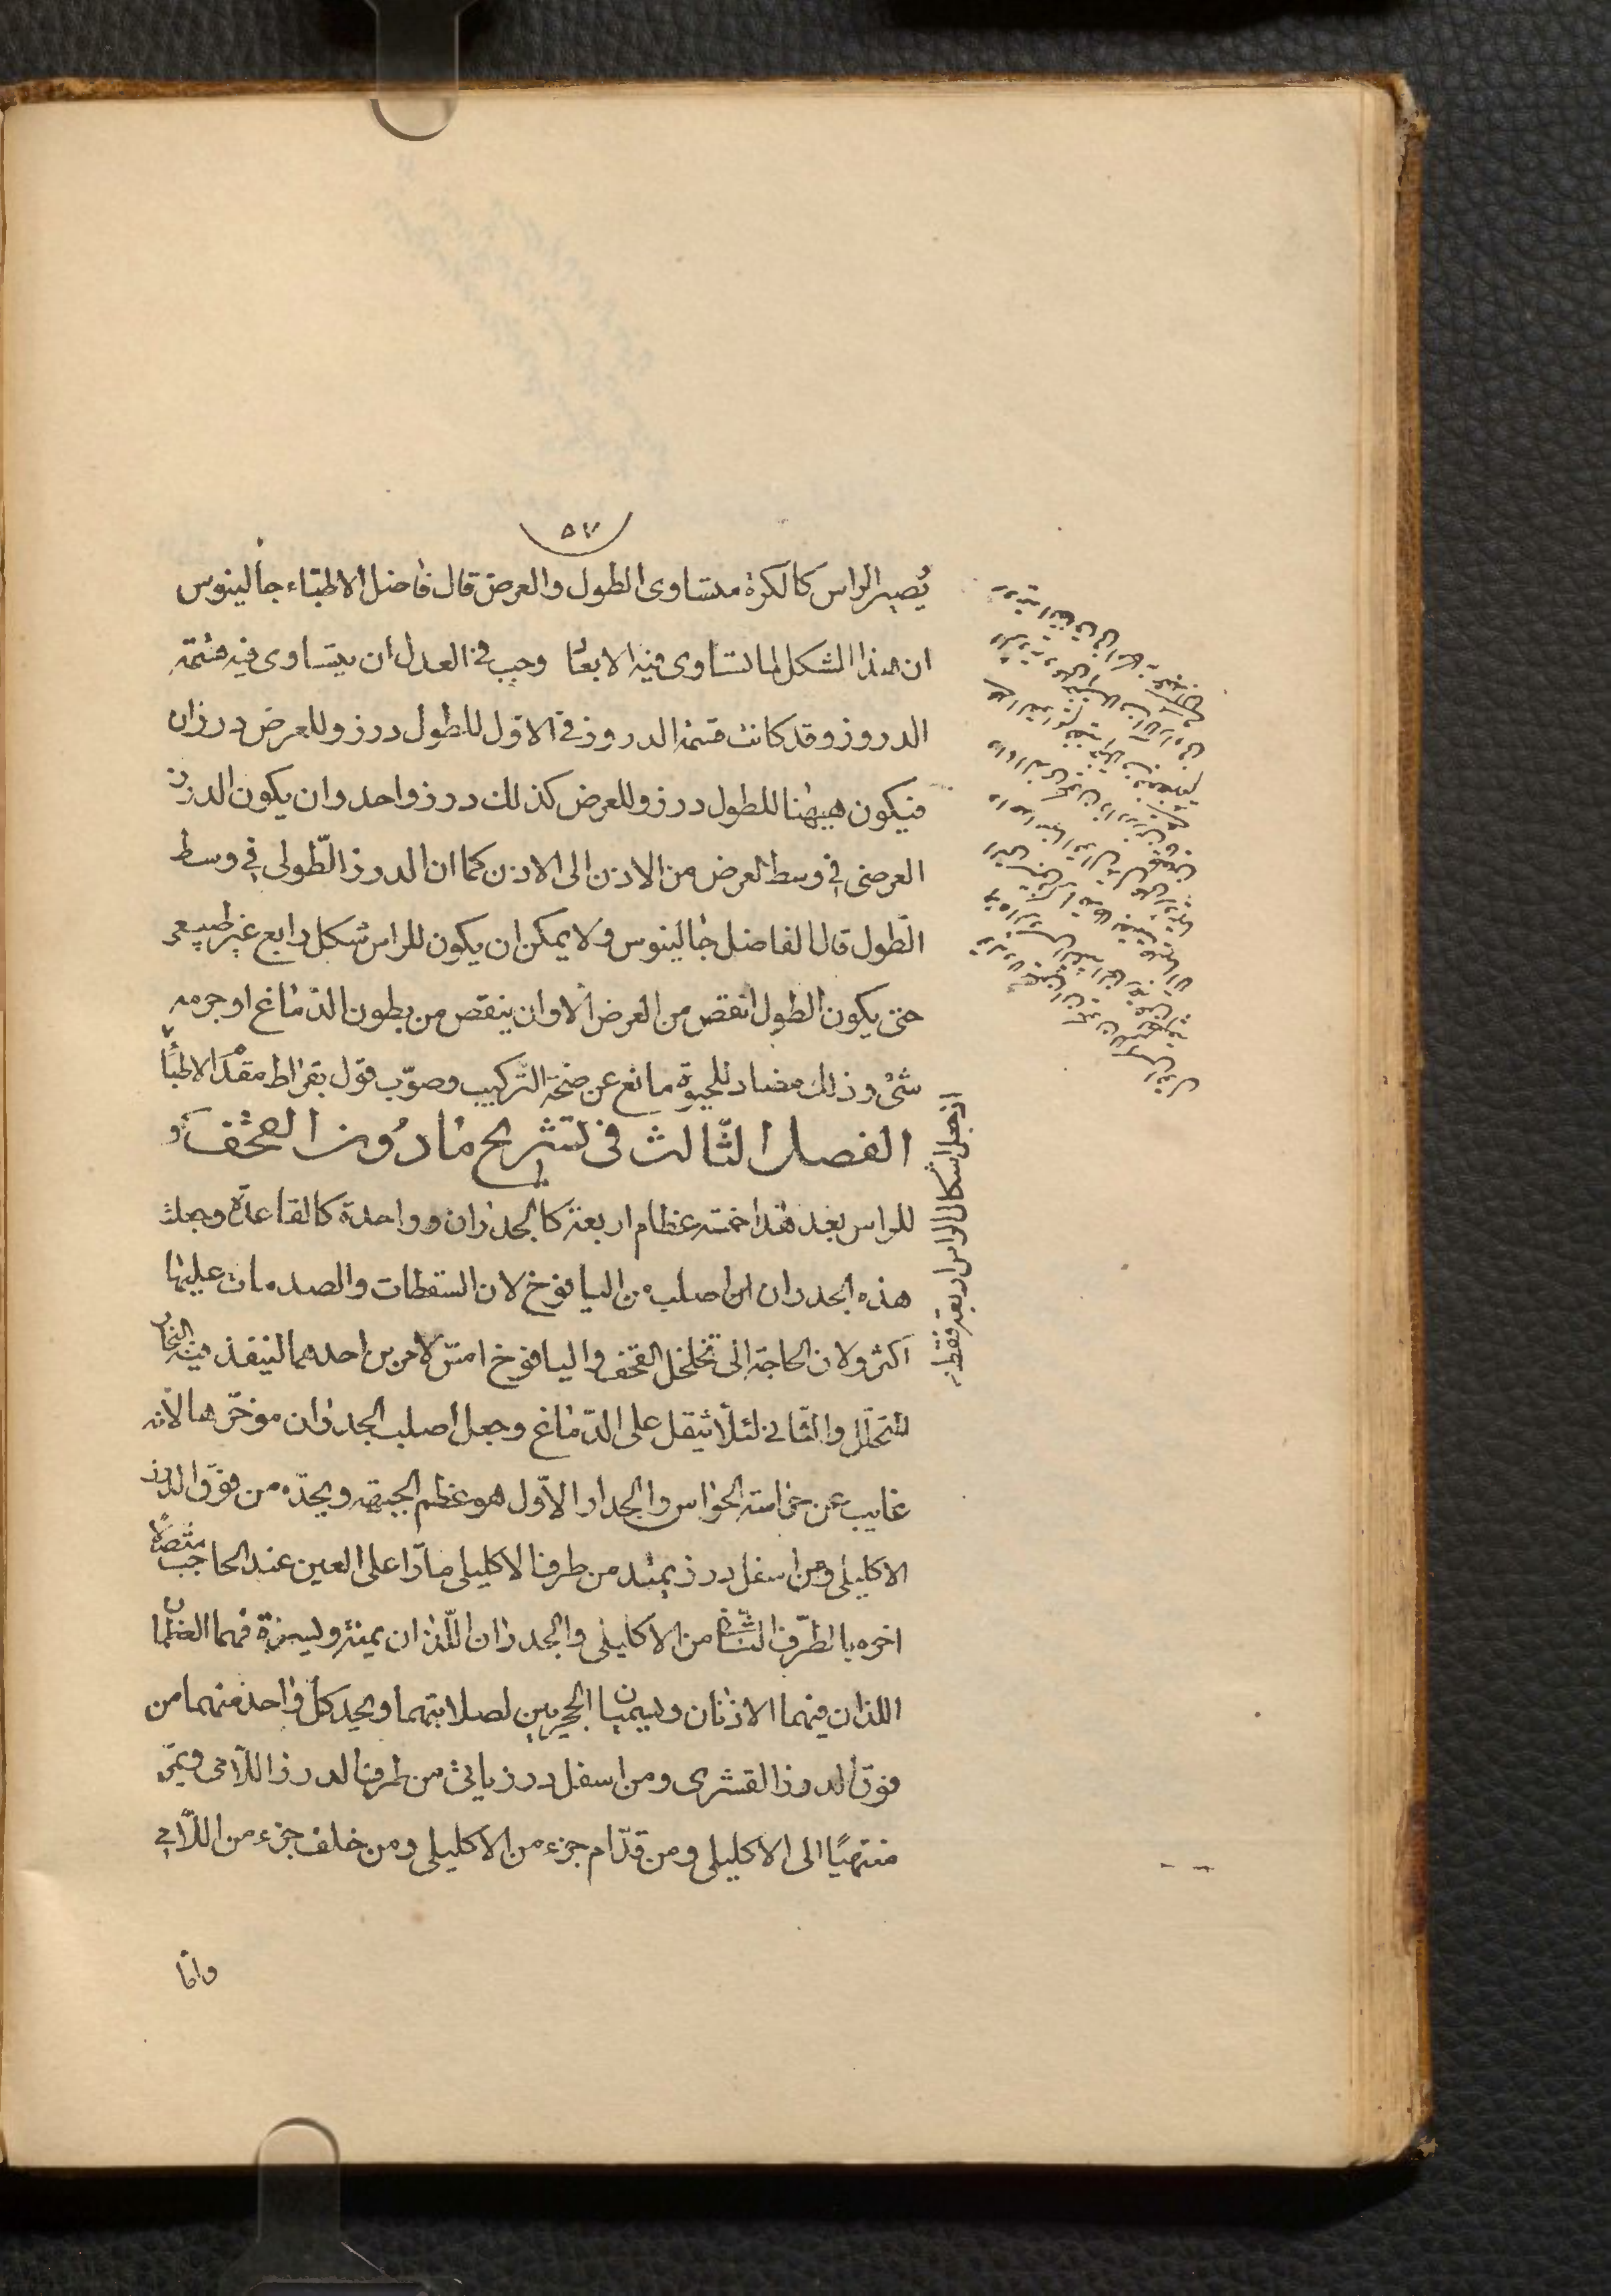 ٥٧
يُصير الراس كالكرة متساوى الطول والعرض قال فاضل الاطبّاء جالينوس
ان هذا الشكل لما تساوى فيه الابعاد وجب فى العدل ان يتساوى فيه قسمة
الدروز وقد كانت قسمة الدروز فى الاوّل للطول درز وللعرض درزان
فيكون ههنا للطول درز وللعرض كذلك درز واحد وان يكون الدرز
العرضى فى وسط العرض من الاذن الى الاذن كما ان الدرز الطّولى فى وسط
الطّول قال الفاضل جالينوس ولا يمكن ان يكون للراس شكل رابع غير طبيعى
حتى يكون الطول انقص من العرض الا وان ينقص من بطون الدّماغ او جرمه
شئ وذلك مضاد للحيوة مانع عن صحّة التركيب وصوّب قول بقراط مقدّم الاطبّاء
اذ جعل اشكال الراس اربعة فقط
الفصل الثّالث فى تشريح مادون القحف
للراس بعد هذا خمسة عظام اربعة كالجدران وواحدة كالقاعدة وجعلت
هذه الجدران اصلب من اليافوخ لان السّقطات والصدمات عليها
اكثر ولان الحاجة الى تخلخل القحف واليافوخ امسّ لامرين احدهما لينفذ فيه البخار
المتحلّل والثّانى لئلّا يثقل على الدّماغ وجعل اصلب الجدران موخّرها لانّه
غايب عن حراسة الحواس والجدار الاوّل هو عظم الجبهة ويحدّه من فوق الدرز
الاكليلى ومن اسفل درز يمتد من طرف الاكليلى مارّا على العين عند الحاجب متصلا
اخره بالطّرف الثّانى من الاكليلى والجدران اللّذان يمنة ويسرة فهما العظمان
اللذان فيهما الاذنان ويسميان الحجريين لصلابتهما ويحد كل واحد منهما من
فوق الدرز القشرى ومن اسفل درز ياتى من طرف الدرز اللّامى ويمرّ
منتهيًا الى الاكليلى ومن قدّام جزء من الاكليلى ومن خلف جزء من اللّامى
وامّا